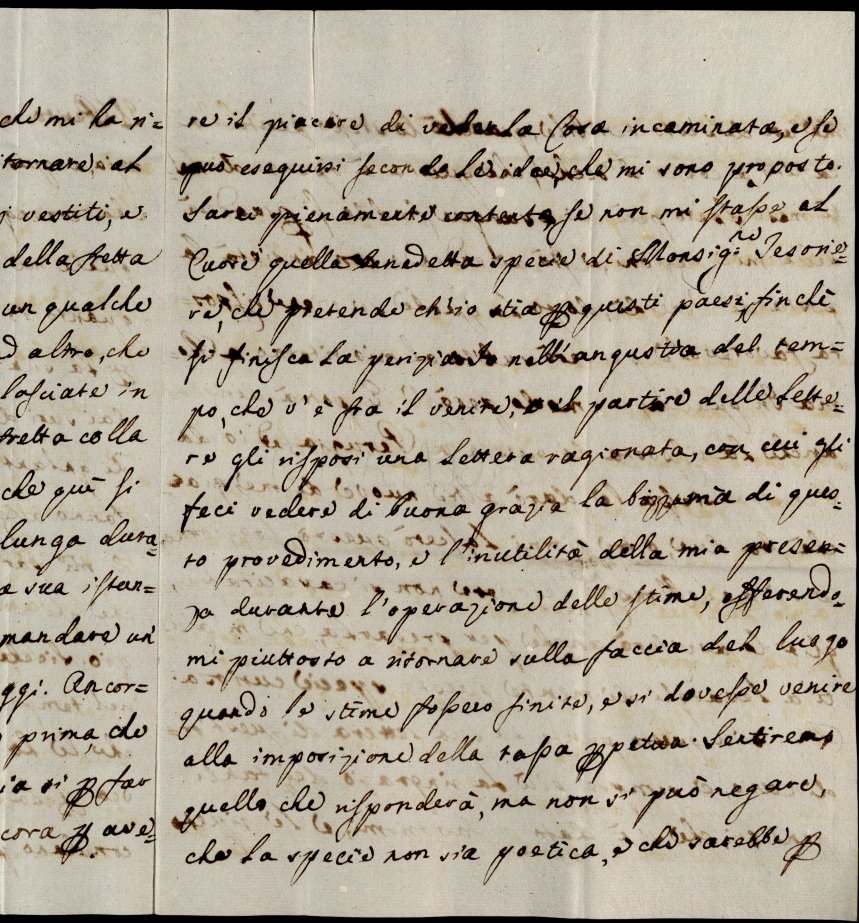 che mi ha ri=
itornare al
i vestiti, e
della stetta
un qualche
d altro, che
lasciate in
tretta colla
che quì si
lunga dura=
a sua istan=
mandare un
ggi. Ancor=
prima, che
ia si p far
cora p ave=
re il piacere di veder la Cosa incaminata, e se
può eseguirsi secondo le idee, che mi sono proposto.
Sarei pienamente contento, se non mi stasse al
Cuore quella benedetta specie di Monsig.re Tesorie=
re, che pretende ch'io stia p questi paesi, finchè
si finisca la perizia. Io nell'angustia del tem=
po, che v'è fra il venire, e il partire delle lette=
re gli risposi una lettera ragionata, con cui gli
feci vedere di buona grazia la bizzarria di ques=
to provedimento, e l'inutilità della mia presen=
za durante l'operazione delle stime, offerendo=
mi piuttosto a ritornare sulla faccia del luogo
quando le stime fossero finite, e si dovesse venire
alla imposizione della tassa ppetua. Sentiremo
quello che risponderà, ma non si può negare,
che la specie non sia poetica, e che sarebbe p